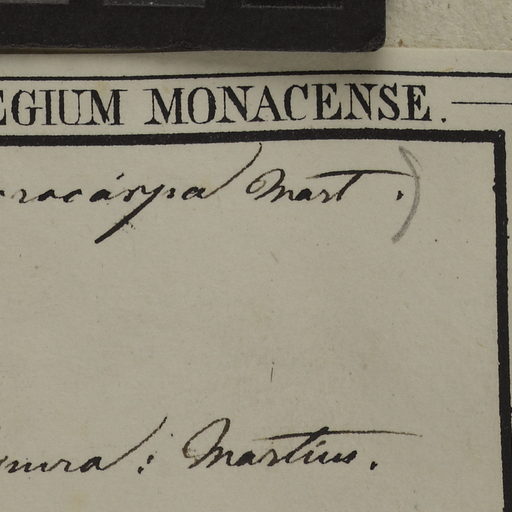 EGIUM MONACENSE.
rocárpa Mart.)
Martius.